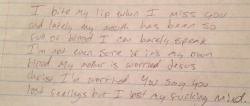 I bite my lip when I miss you
and lately my mouth has been so
full of blood I can barely speak
I'm not even sure its my own
blood My mother is worried Jesus
Christ I'm worried. You say you
lost feelings but I lost my fucking mind